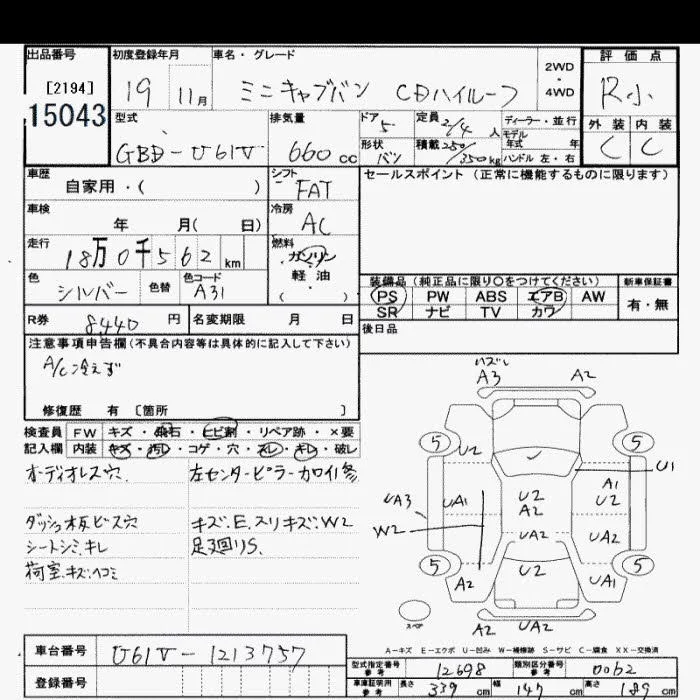 出品番号 初度登録年月 車名・グレード 評価点
[2194]
15043
19 11月 ミニキャブバン CDハイルーフ 2WD・4WD R小
型式 排気量 ドア 定員 ディーラー・並行 外装 内装
GBD-U61V 660cc 5 2/4人 モデル年式 年 C C
形状 バン 積載 250/350kg ハンドル 左・右
車歴 シフト セールスポイント (正常に機能するものに限ります)
自家用・( ) FAT
車検 冷房
年 月( 日) AC
走行 燃料
18万0千562km ガソリン
軽油
( )
色 色替 色コード
シルバー A31
装備品 (純正品に限り○をつけてください) 新車保証書
PS PW ABS エアB AW 有・無
SR ナビ TV カワ
R券 8440円 名変期限 月 日
後日品
注意事項申告欄(不具合内容等は具体的に記入して下さい)
A/C冷えず
修復歴 有 [箇所 ]
検査員 FW キズ・飛石・ヒビ割・リペア跡・×要
記入欄 内装 キズ・汚レ・コゲ・穴・スレ・キレ・破レ
オーディオレス穴 左センターピラーカロイ修
ダッシュ板ビス穴 キズ.E.スリキズ.W2
シートシミ.キレ 足廻りS.
荷室.キズ.ヘコミ
ハズレ
A3 A2
5 U2 5 U1
UA3 UA1 U2 A2 A1 U2
W2 UA2 UA2
5 A2 U2 UA1 5
スペア A2 UA2
A-キズ E-エクボ U-凹み W-補修跡 S-サビ C-腐食 XX-交換済
車台番号 U61V-1213757
登録番号
型式指定番号 参考 12698 類別区分番号 参考 0062
車庫証明用 参考 長さ 339cm 幅 147cm 高さ 189cm